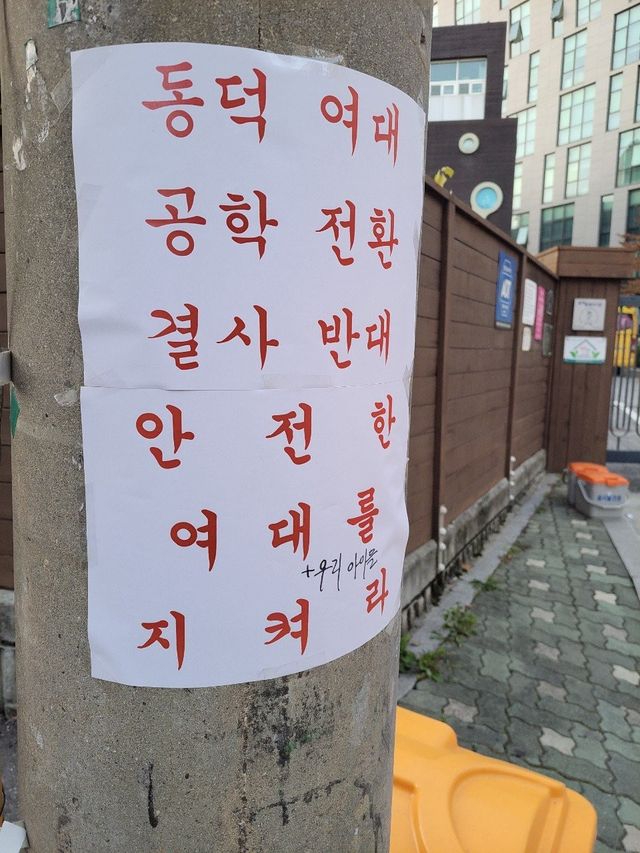 동덕 여대
공학 전환
결사 반대
안전한
여대를
+우리 아이들
지켜라